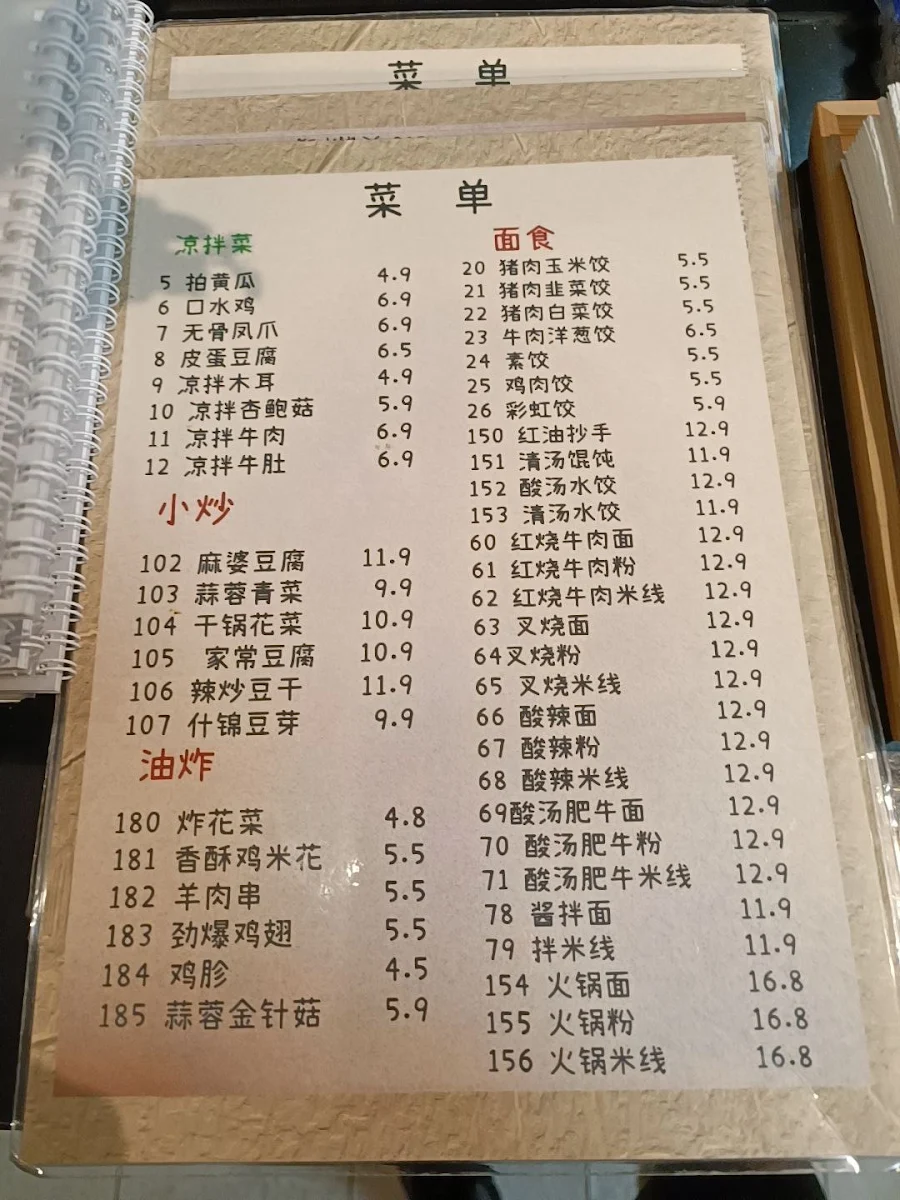 菜 单
菜 单
凉拌菜
5 拍黄瓜 4.9
6 口水鸡 6.9
7 无骨凤爪 6.9
8 皮蛋豆腐 6.5
9 凉拌木耳 4.9
10 凉拌杏鲍菇 5.9
11 凉拌牛肉 6.9
12 凉拌牛肚 6.9
小炒
102 麻婆豆腐 11.9
103 蒜蓉青菜 9.9
104 干锅花菜 10.9
105 家常豆腐 10.9
106 辣炒豆干 11.9
107 什锦豆芽 9.9
油炸
180 炸花菜 4.8
181 香酥鸡米花 5.5
182 羊肉串 5.5
183 劲爆鸡翅 5.5
184 鸡胗 4.5
185 蒜蓉金针菇 5.9
面食
20 猪肉玉米饺 5.5
21 猪肉韭菜饺 5.5
22 猪肉白菜饺 5.5
23 牛肉洋葱饺 6.5
24 素饺 5.5
25 鸡肉饺 5.5
26 彩虹饺 5.9
150 红油抄手 12.9
151 清汤馄饨 11.9
152 酸汤水饺 12.9
153 清汤水饺 11.9
60 红烧牛肉面 12.9
61 红烧牛肉粉 12.9
62 红烧牛肉米线 12.9
63 叉烧面 12.9
64叉烧粉 12.9
65 叉烧米线 12.9
66 酸辣面 12.9
67 酸辣粉 12.9
68 酸辣米线 12.9
69酸汤肥牛面 12.9
70 酸汤肥牛粉 12.9
71 酸汤肥牛米线 12.9
78 酱拌面 11.9
79 拌米线 11.9
154 火锅面 16.8
155 火锅粉 16.8
156 火锅米线 16.8